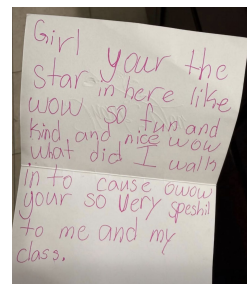 Girl your the
star in here like
wow so fun and
kind, and nice wow
what did I walk
in to cause owow
your so very speshil
to me and my
class.